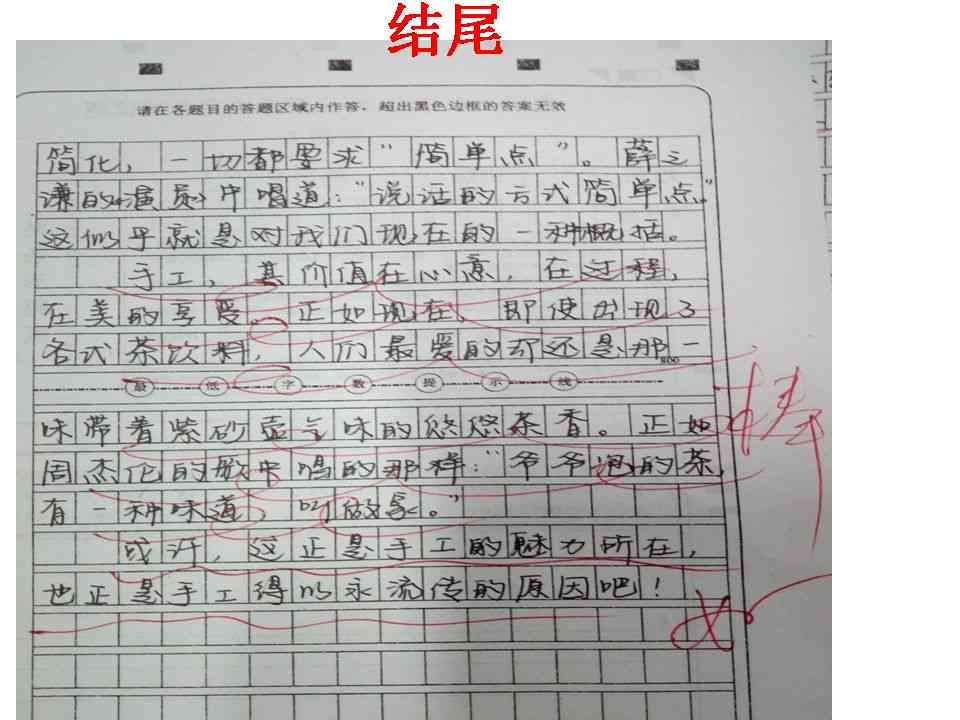 结尾
请在各题目的答题区域内作答，超出黑色边框的答案无效
简化，一切都要求“简单点”。薛之
谦的演员中唱道：“说话的方式简单点”
这似乎就是对我们现在的一种概括。
手工，其价值在心意，在过程，
在美的享受。正如现在，即使出现了
各式茶饮料，人们最爱的却还是那一
800
最低字数提示线
味带着紫砂壶气味的悠悠茶香。正如
周杰伦的歌中唱的那样：“爷爷泡的茶，
有一种味道，叫做家。”
或许，这正是手工的魅力所在，
也正是手工得以永流传的原因吧！